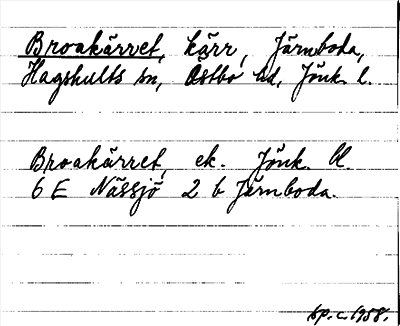 Broakärret, kärr, Järnboda,
Hagshults sn, Östbo hd, Jönk. l.
Broakärret, ek. Jönk. Bl.
6 E Nässjö 2 b Järnboda.
1958.